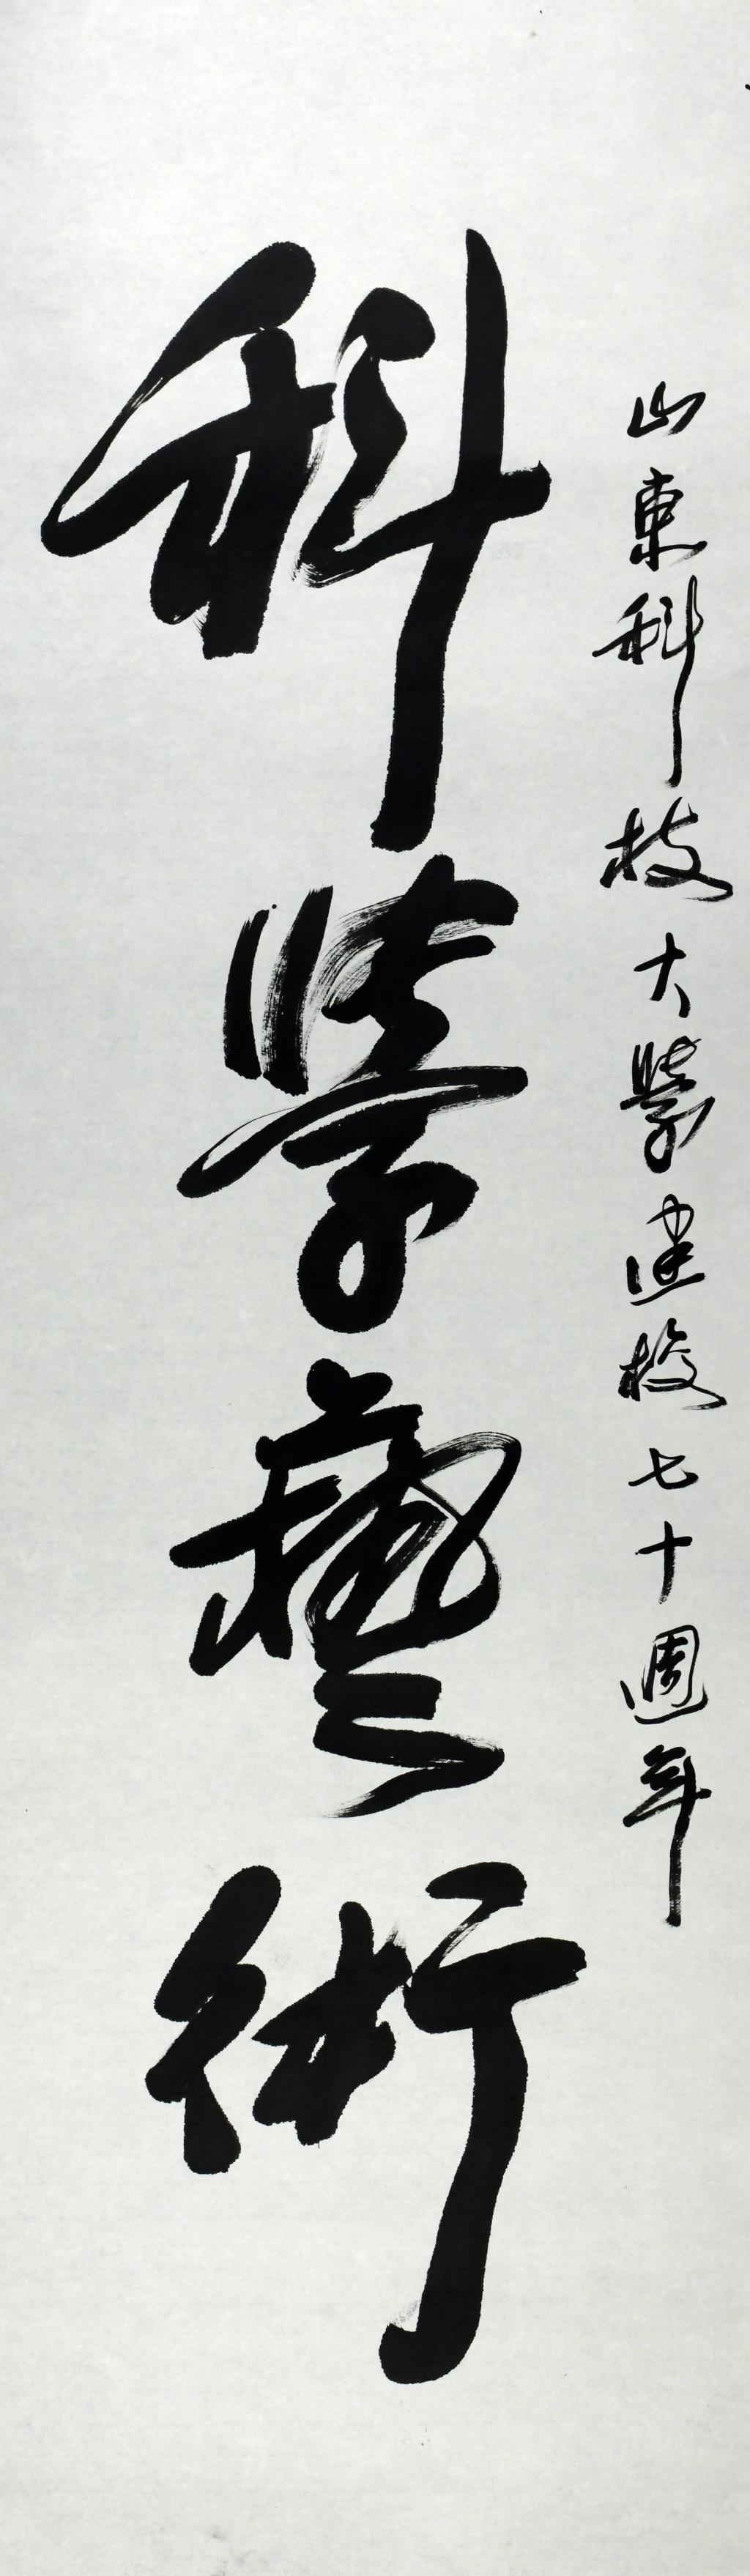 山東科技大學建校七十週年
科學藝術